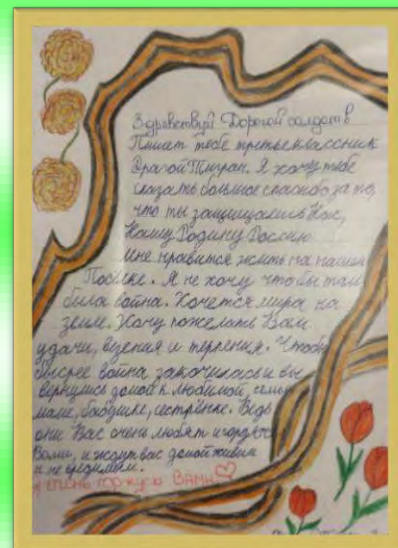 Здравствуй Дорогой солдат в
Пишет тебе третьеклассник
Драгой Тигран. Я хочу тебе
сказать большое спасибо за то,
что ты защищаешь Нас,
Нашу Родину Россию
Мне нравится жить на нашем
Посёлке. Я не хочу чтобы там
была война. Хочется мира на
земле. Хочу пожелать Вам
удачи, везения и терпения. Чтобы
быстрее война закочилась и вы
вернулись домой к любимой, семье
маме, бабушке, сестрёнке. Ведь
они Вас очень любят и гордяться
Вами, и ждут вас домой живым
и не вредимым.
я очень горжусь Вами